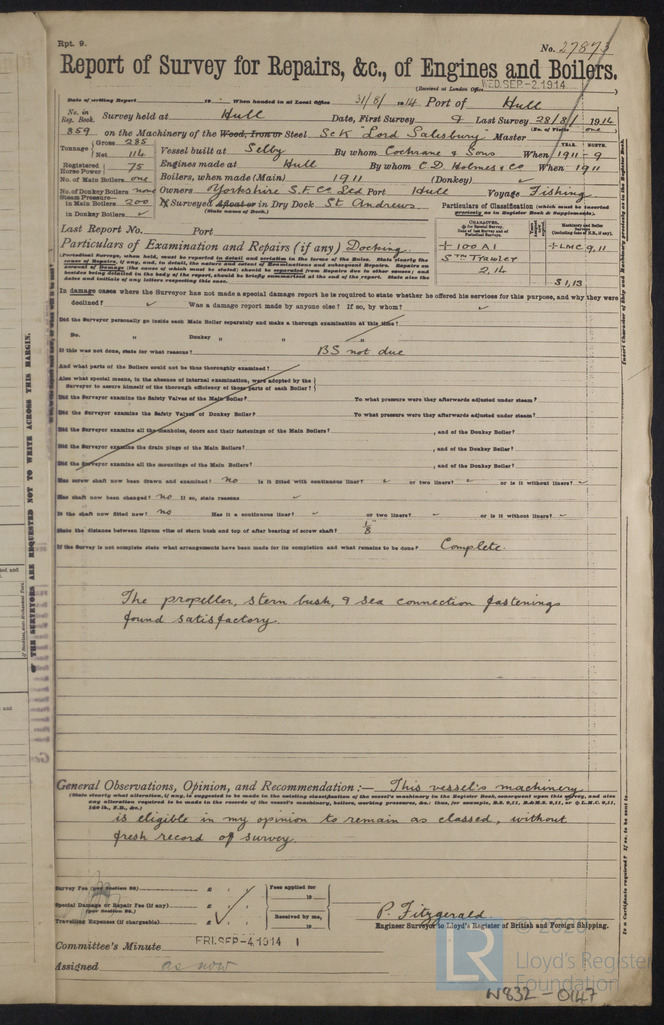 Rpt. 9.
No. 27873
Report of Survey for Repairs, &c., of Engines and Boilers.
(Received at London Office WED.SEP-2.1914)
Date of writing Report 19 When handed in at Local Office 31/8/1914 Port of Hull
No. in Reg. Book. Survey held at Hull Date, First Survey & Last Survey 28/8/1914
859 on the Machinery of the Wood, Iron or Steel Sc K "Lord Salesbury" Master (No. of Visits one)
Tonnage Gross 285 Net 114 Vessel built at Selby By whom Cochrane & Sons When 1911 - 9
Registered Horse Power 75 Engines made at Hull By whom C.D. Holmes & Co When 1911
No. of Main Boilers one Boilers, when made (Main) 1911 (Donkey)
No. of Donkey Boilers none Owners Yorkshire S.F. Co Ltd Port Hull Voyage Fishing
Steam Pressure in Main Boilers 200 If Surveyed Afloat or in Dry Dock St Andrews
in Donkey Boilers ✓ (State name of Dock.)
Particulars of Classification (which must be inserted precisely as in Register Book & Supplements).
Last Report No. Port
Particulars of Examination and Repairs (if any) Docking
+ 100 A1 + LMC 9,11
STM Trawler
2,14
S 1,13
In damage cases where the Surveyor has not made a special damage report he is required to state whether he offered his services for this purpose, and why they were
declined? ✓ Was a damage report made by anyone else? If so, by whom? ✓
Did the Surveyor personally go inside each Main Boiler separately and make a thorough examination at this time?
Do. " Donkey " " "
If this was not done, state for what reasons? BS not due
And what parts of the Boilers could not be thoroughly examined?
Also what special means, in the absence of internal examination, were adopted by the
Surveyor to assure himself of the thorough efficiency of those parts of each Boiler?
Did the Surveyor examine the Safety Valves of the Main Boiler? To what pressure were they afterwards adjusted under steam?
Did the Surveyor examine the Safety Valves of Donkey Boiler? To what pressure were they afterwards adjusted under steam?
Did the Surveyor examine all the manholes, doors and their fastenings of the Main Boilers? , and of the Donkey Boiler?
Did the Surveyor examine the drain plugs of the Main Boilers? , and of the Donkey Boiler?
Did the Surveyor examine all the mountings of the Main Boilers? , and of the Donkey Boiler?
Has screw shaft now been drawn and examined? no Is it fitted with continuous liner? ✓ or two liners? ✓ or is it without liners? ✓
Has shaft now been changed? no If so, state reasons ✓
Is the shaft now fitted new? no Has it a continuous liner? ✓ or two liners? ✓ or is it without liners? ✓
State the distance between lignum vitæ of stern bush and top of after bearing of screw shaft? 1/8"
If the Survey is not complete state what arrangements have been made for its completion and what remains to be done? Complete.
The propeller, stern bush, & sea connection fastenings
found satisfactory.
General Observations, Opinion, and Recommendation :— This vessel's machinery
(State clearly what alteration, if any, is suggested to be made in the existing classification of the vessel's machinery in the Register Book, consequent upon this survey, and also
any alteration required to be made in the records of the vessel's machinery, boilers, working pressures, &c.: thus, for example, B.S. 9,11, B.&M.S. 9,11, or L.M.C. 9,11,
140 lb., F.D., &c.)
is eligible in my opinion to remain as classed, without
fresh record of survey.
Survey Fee (per Section 28) £ Fees applied for
19
Special Damage or Repair Fee (if any) £
(per Section 28.)
Travelling Expenses (if chargeable) £ Received by me,
19
P. Fitzgerald
Engineer Surveyor to Lloyd's Register of British and Foreign Shipping.
Committee's Minute FRI.SEP-4.1914
Assigned as now
OF THE SURVEYORS ARE REQUESTED NOT TO WRITE ACROSS THIS MARGIN.
© 2020
LR
Lloyd's Register
Foundation
W832-0147